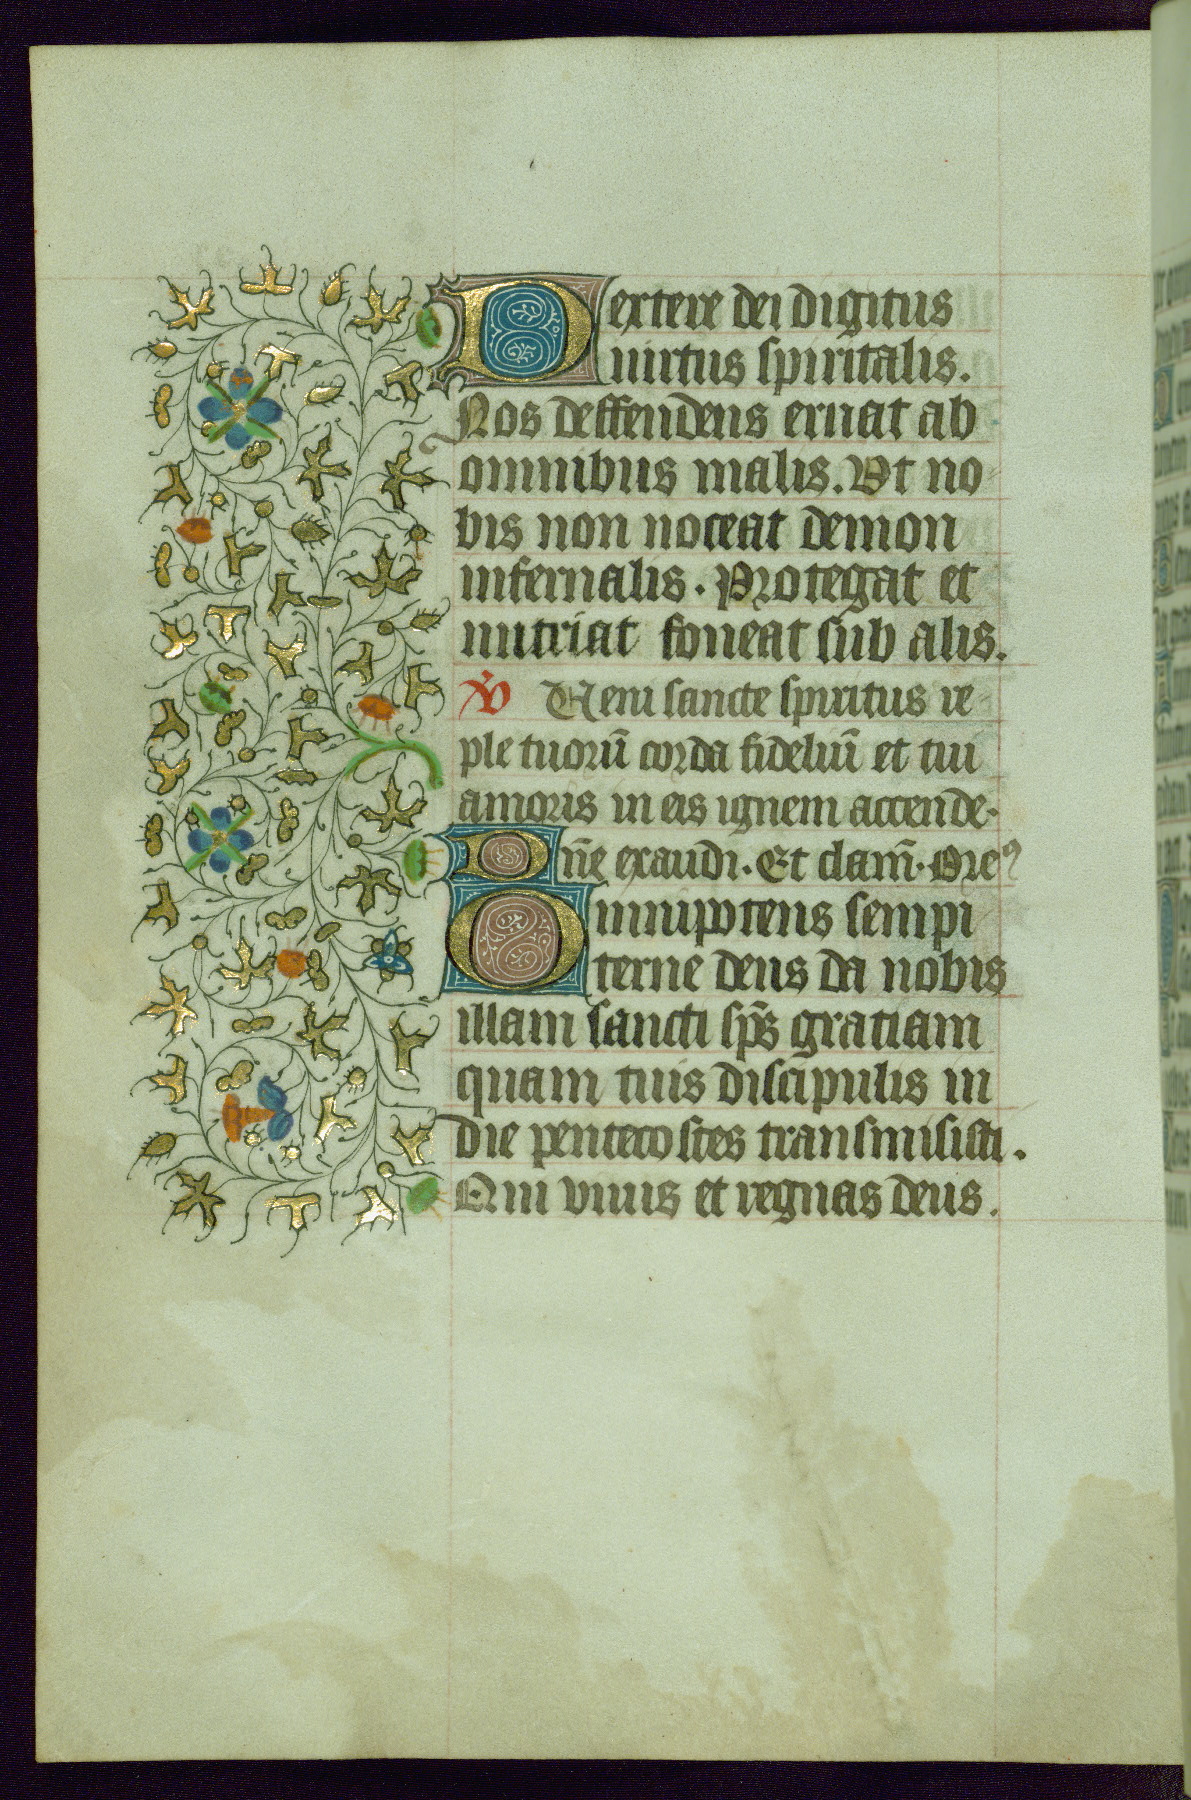 Dextere dei digitus
uirtus spiritalis.
Nos deffendens eruat ab
omnibus malis. Vt no
bis non noceat demon
infernalis. Protegat et
nutriat foueat sub alis.
V̕ Ueni sancte spiritus re
ple tuorū corda fideliū et tui
amoris in eis ignem accende.
Dn̄e exaudi. Et clam̄. Oreꝰ
Omnipotens sempi
terne deus da nobis
illam sancti sp̄s gratiam
quam tuis discipulis in
die pentecostes transmisisti.
Qui viuis et regnas deus.